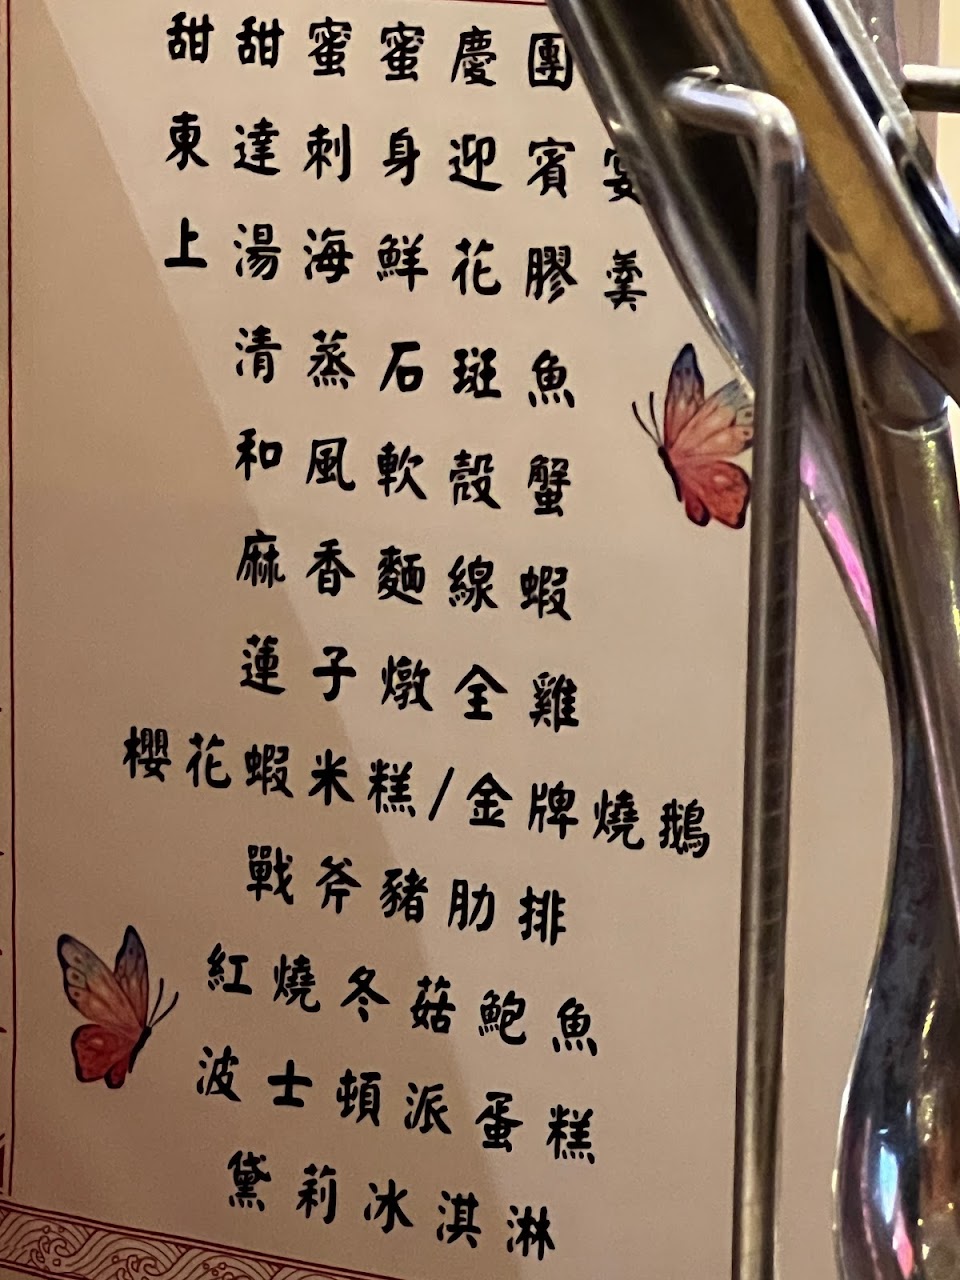 甜甜蜜蜜慶團
東達刺身迎賓宴
上湯海鮮花膠羹
清蒸石斑魚
和風軟殼蟹
麻香麵線蝦
蓮子燉全雞
櫻花蝦米糕/金牌燒鵝
戰斧豬肋排
紅燒冬菇鮑魚
波士頓派蛋糕
黛莉冰淇淋